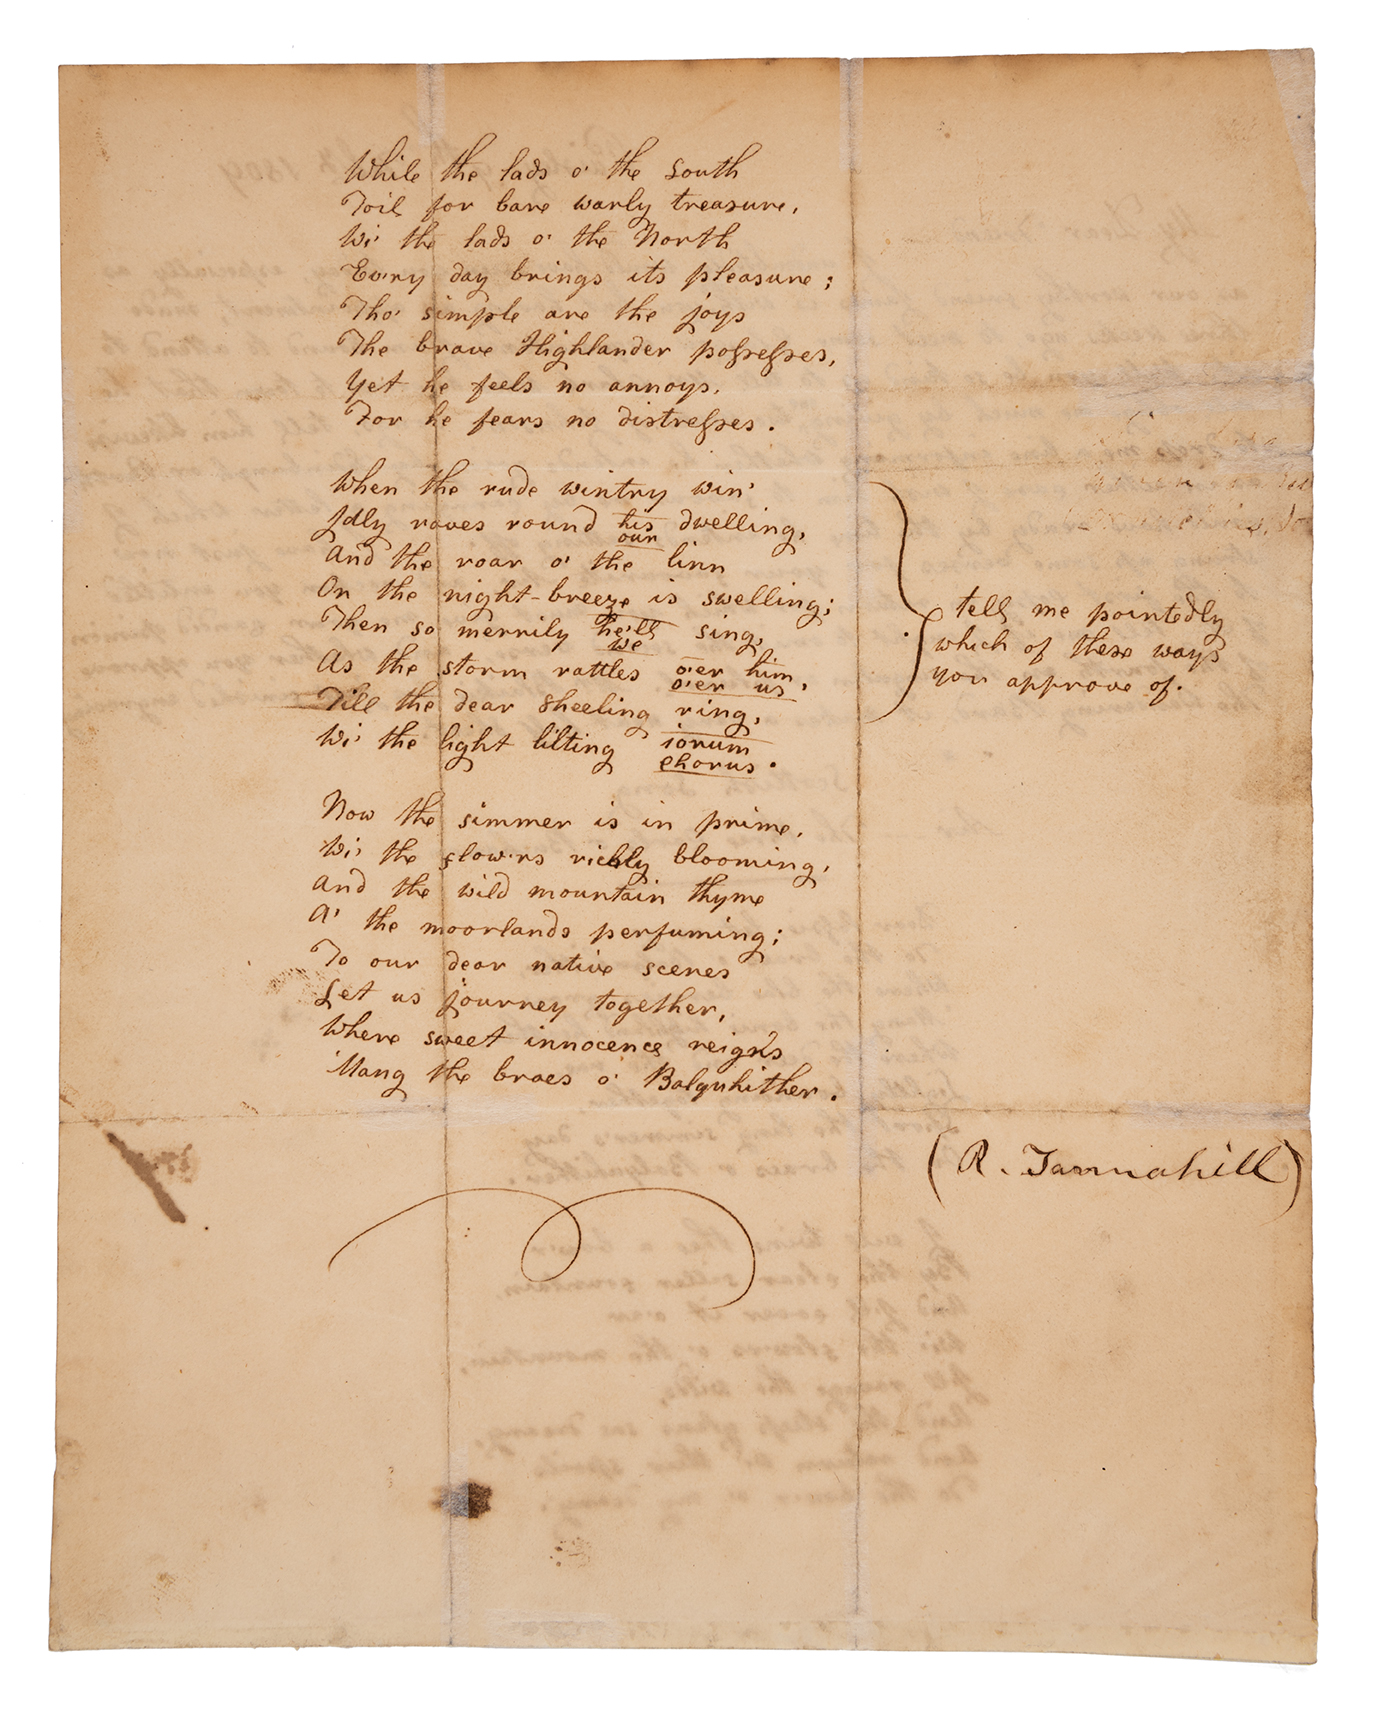 While the lads o' the South
Toil for bare warly treasure,
Wi' the lads o' the North
Ev'ry day brings its pleasure;
Tho' simple are the joys
The brave Highlander possesses,
Yet he feels no annoys,
For he fears no distresses.
When the rude wintry win'
Idly raves round his dwelling,
our
And the roar o' the linn
On the night-breeze is swelling;
Then so merrily he'll sing,
we
As the storm rattles o'er him,
o'er us
Till the dear sheeling ring,
Wi' the light lilting jorum
chorus.
tell me pointedly
which of these ways
you approve of.
Now the simmer is in prime,
Wi' the flow'rs richly blooming,
And the wild mountain thyme
A' the moorlands perfuming;
To our dear native scenes
Let us journey together,
Where sweet innocence reigns
'Mang the braes o' Balquhither.
(R. Tannahill)